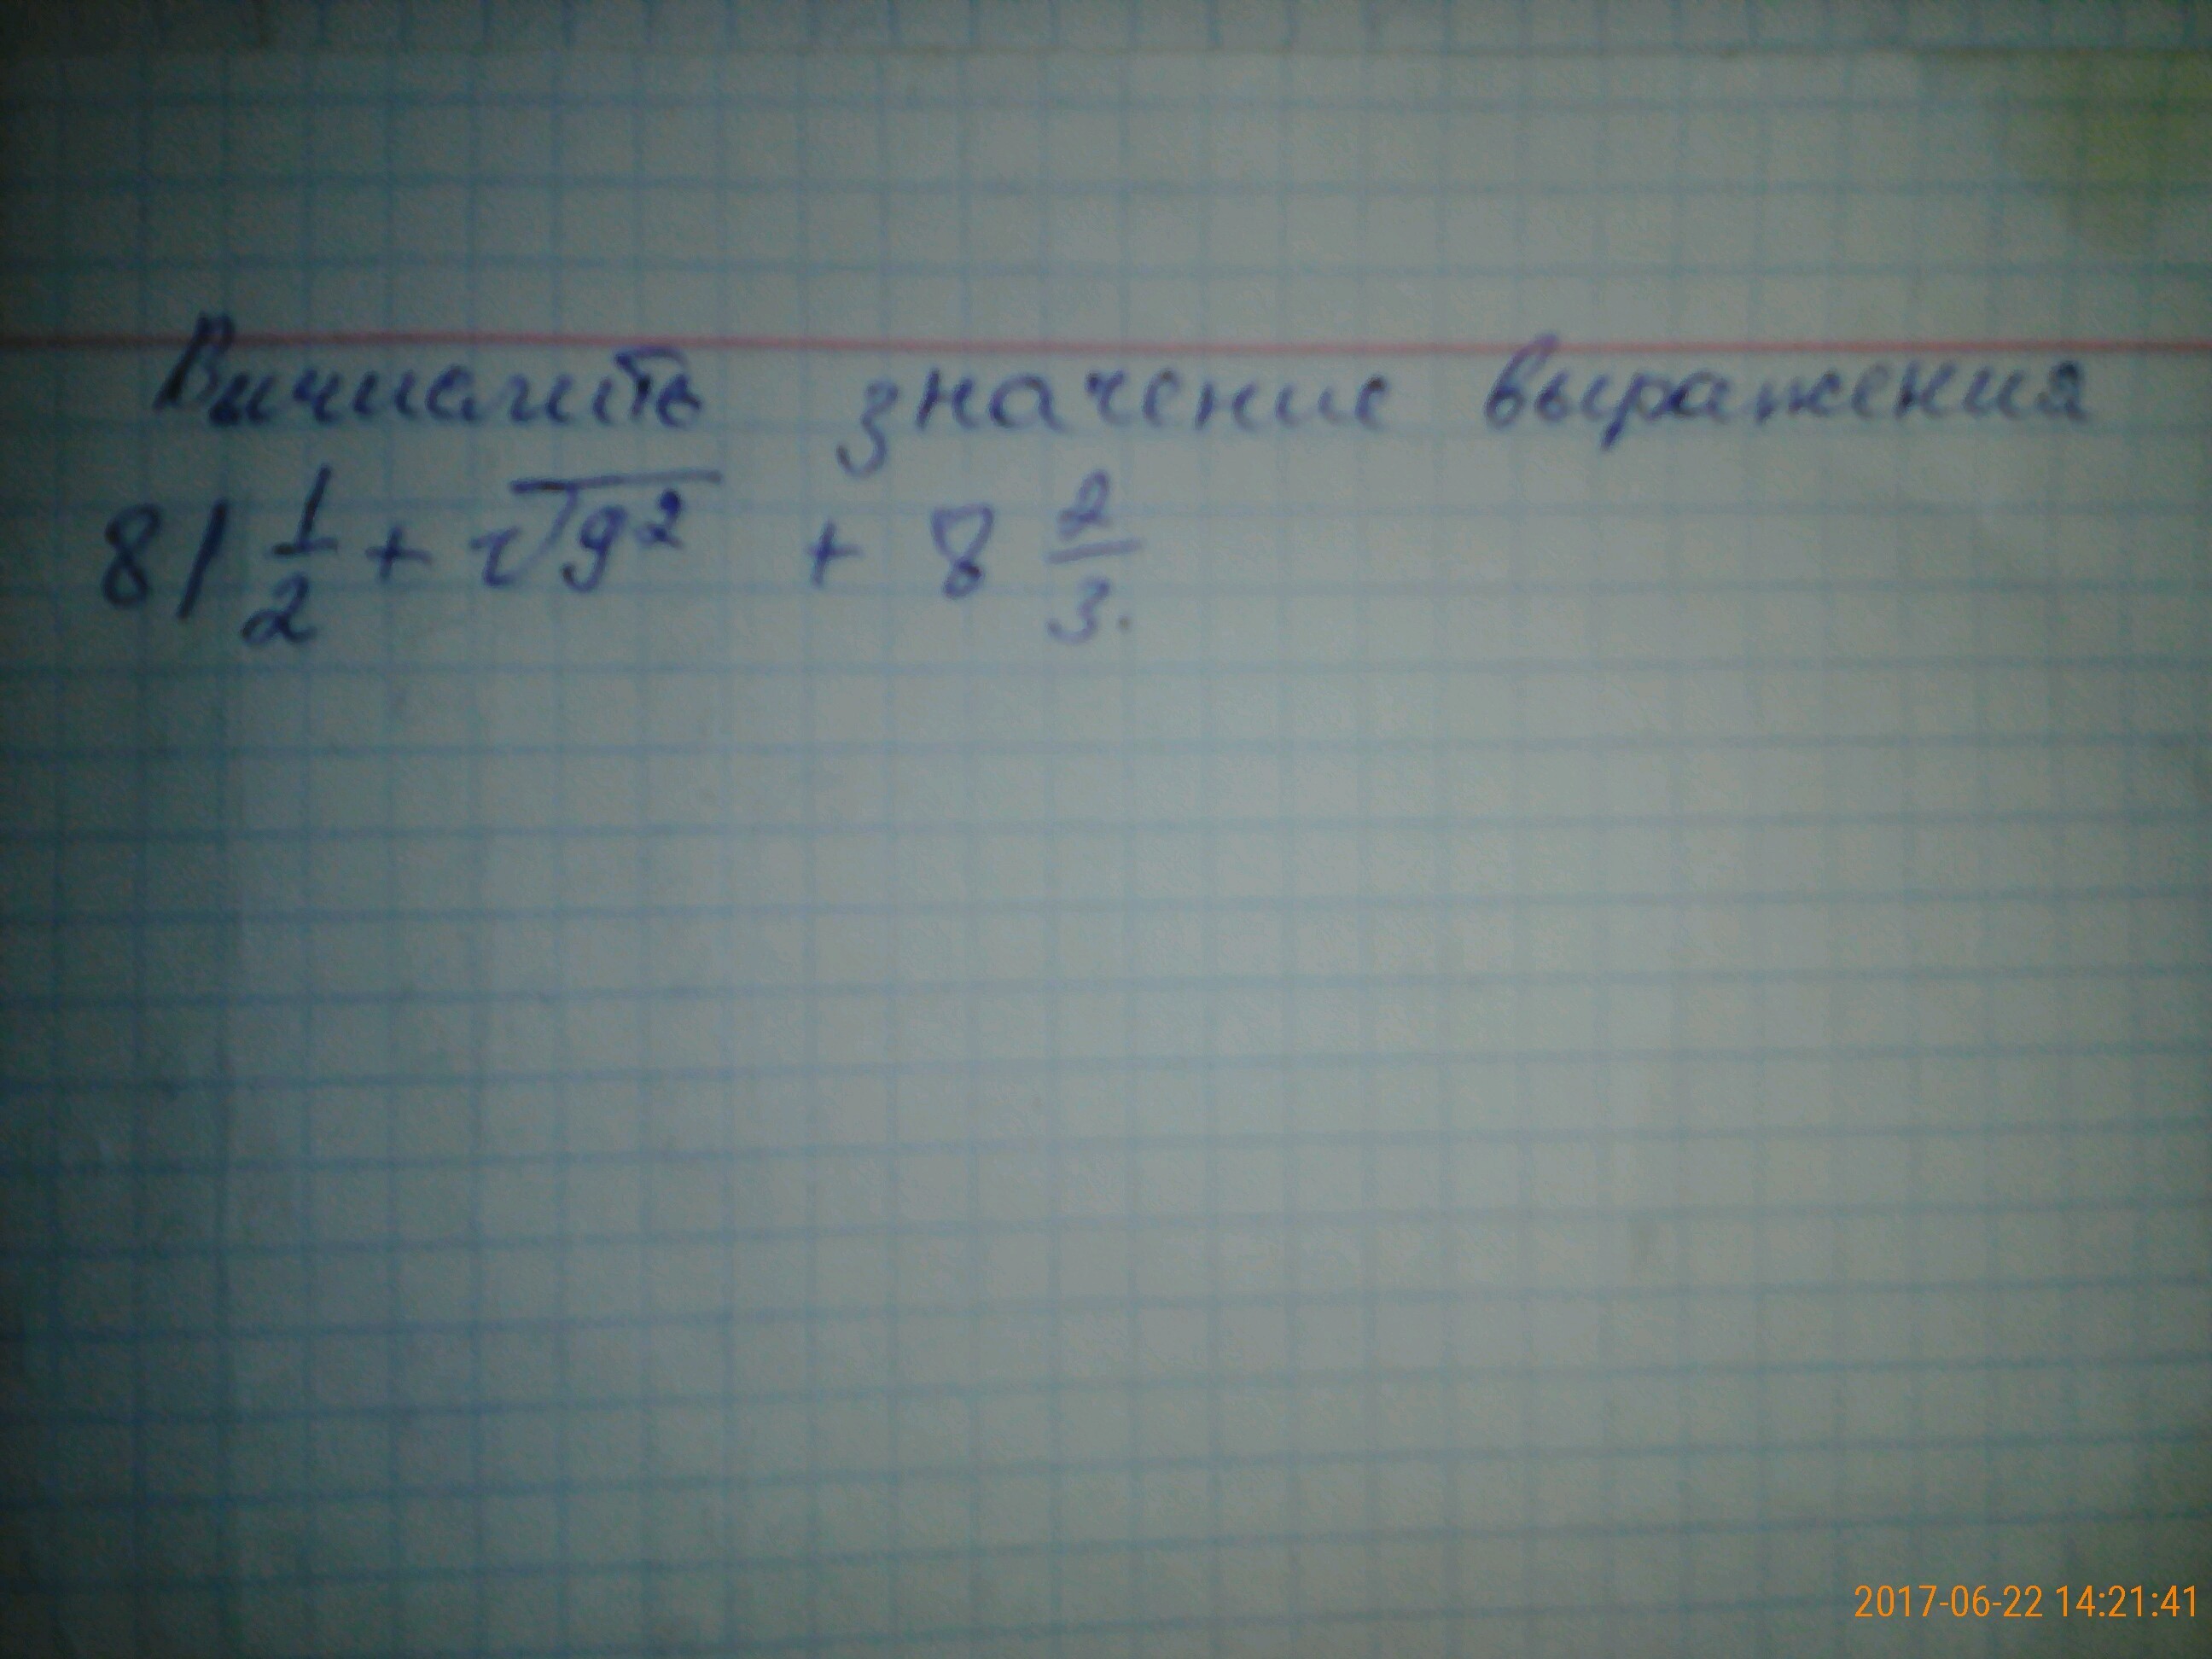 Вичислить значение выражения
81 1/2 + √9² + 8 2/3.
2017-06-22 14:21:41